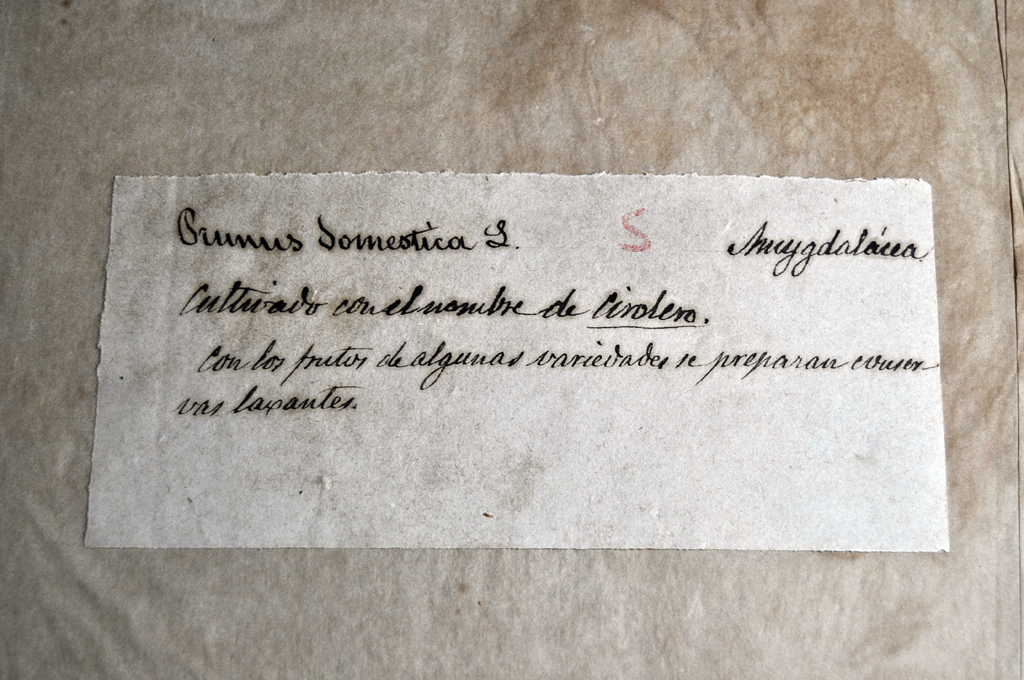 Prunus domestica L. S Amygdalácea
Cultivado con el nombre de Cirolero.
Con los frutos de algunas variedades se preparan conser-
vas laxantes.